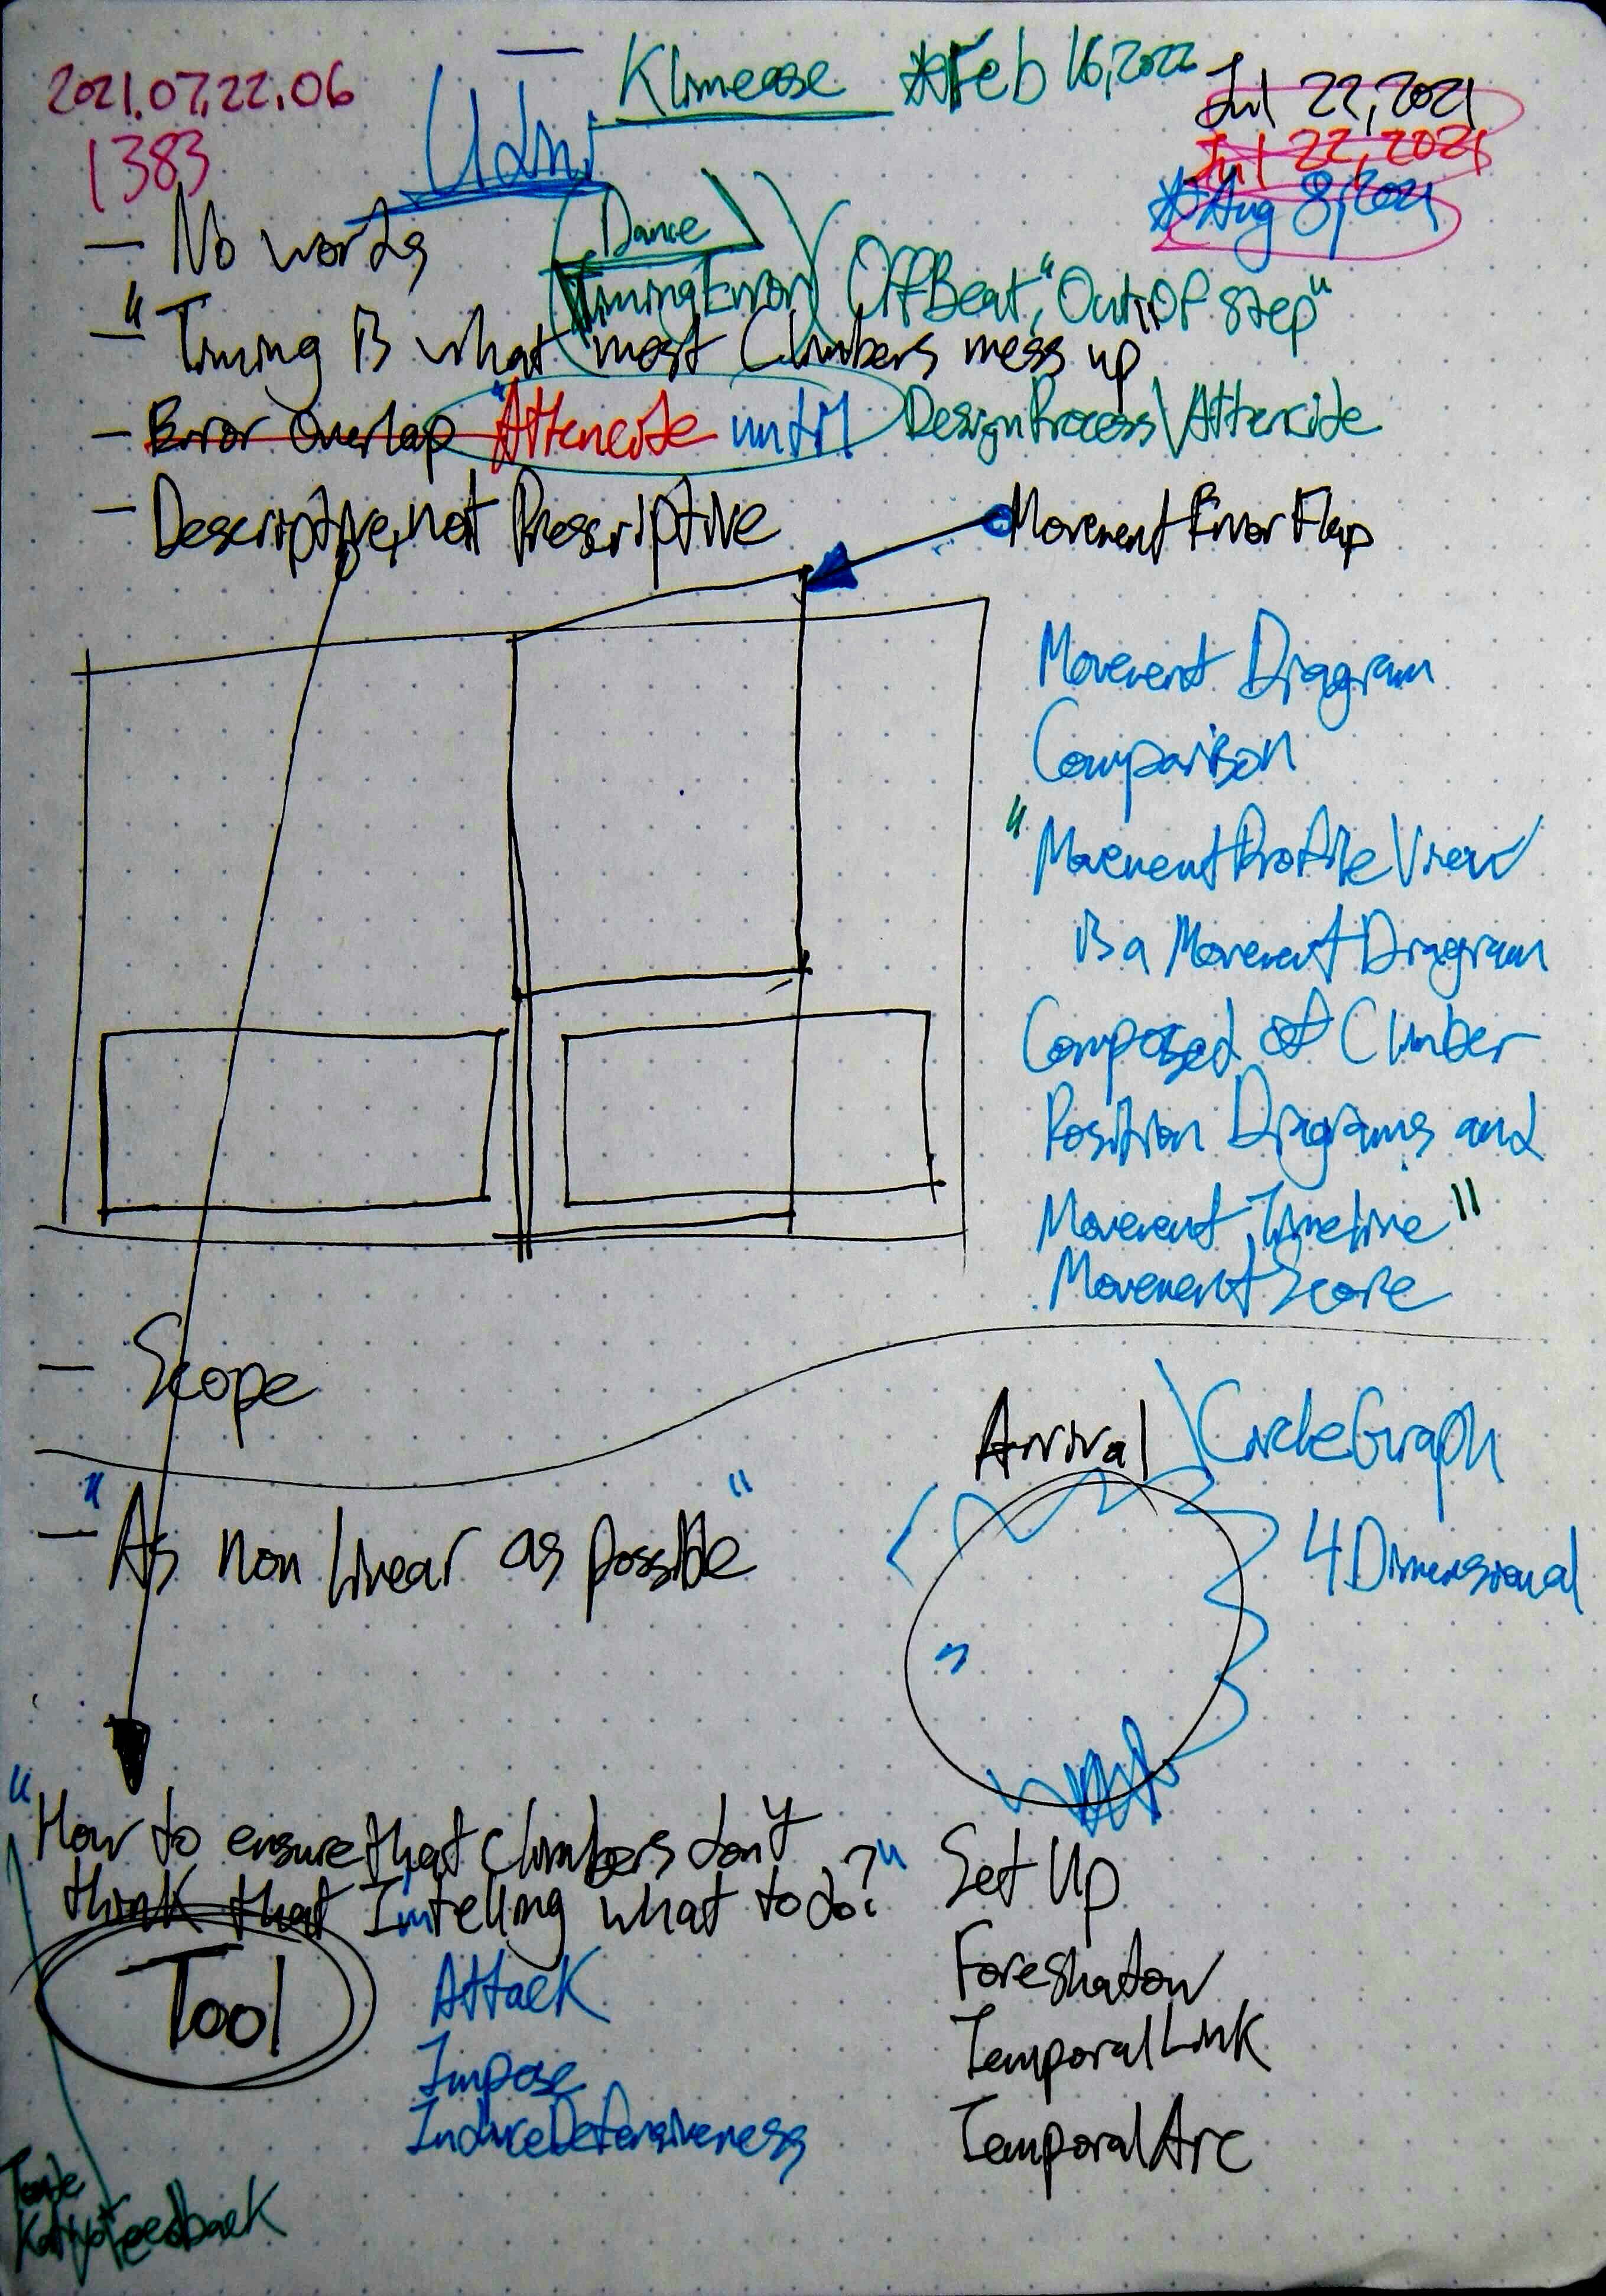 2021.07.22.06
1383
Klimease ☆Feb 16, 2022
Jul 22, 2021
Jul 22, 2021
☆Aug 8, 2021
— No words
Dance \
TimingError \ OffBeat, "OutOfStep"
— "Timing is what most Climbers mess up
— Error Overlap "Attencite until DesignProcess\Attencite
— Descriptive, not Prescriptive
MovementErrorFlap
Movement Diagram
Comparison
"MovementProfileView
is a MovementDiagram
Composed of Climber
Position Diagrams and
Movement Timeline"
MovementScore
— Scope
Arrival \ CircleGraph
4Dimensional
— "As non linear as possible"
"How to ensure that climbers don't
think that I'm telling what to do?"
Tool
Attack
Impose
InduceDefensiveness
Set Up
Foreshadow
TemporalLink
TemporalArc
Feedback